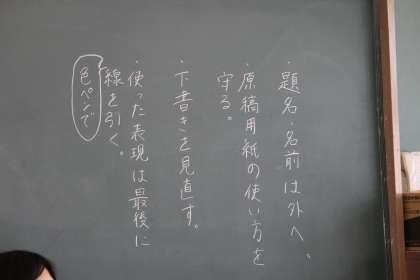 ・題名・名前は外へ。
・原稿用紙の使い方を
守る。
・下書きを見直す。
・使った表現は最後に
線を引く。
色ペンで